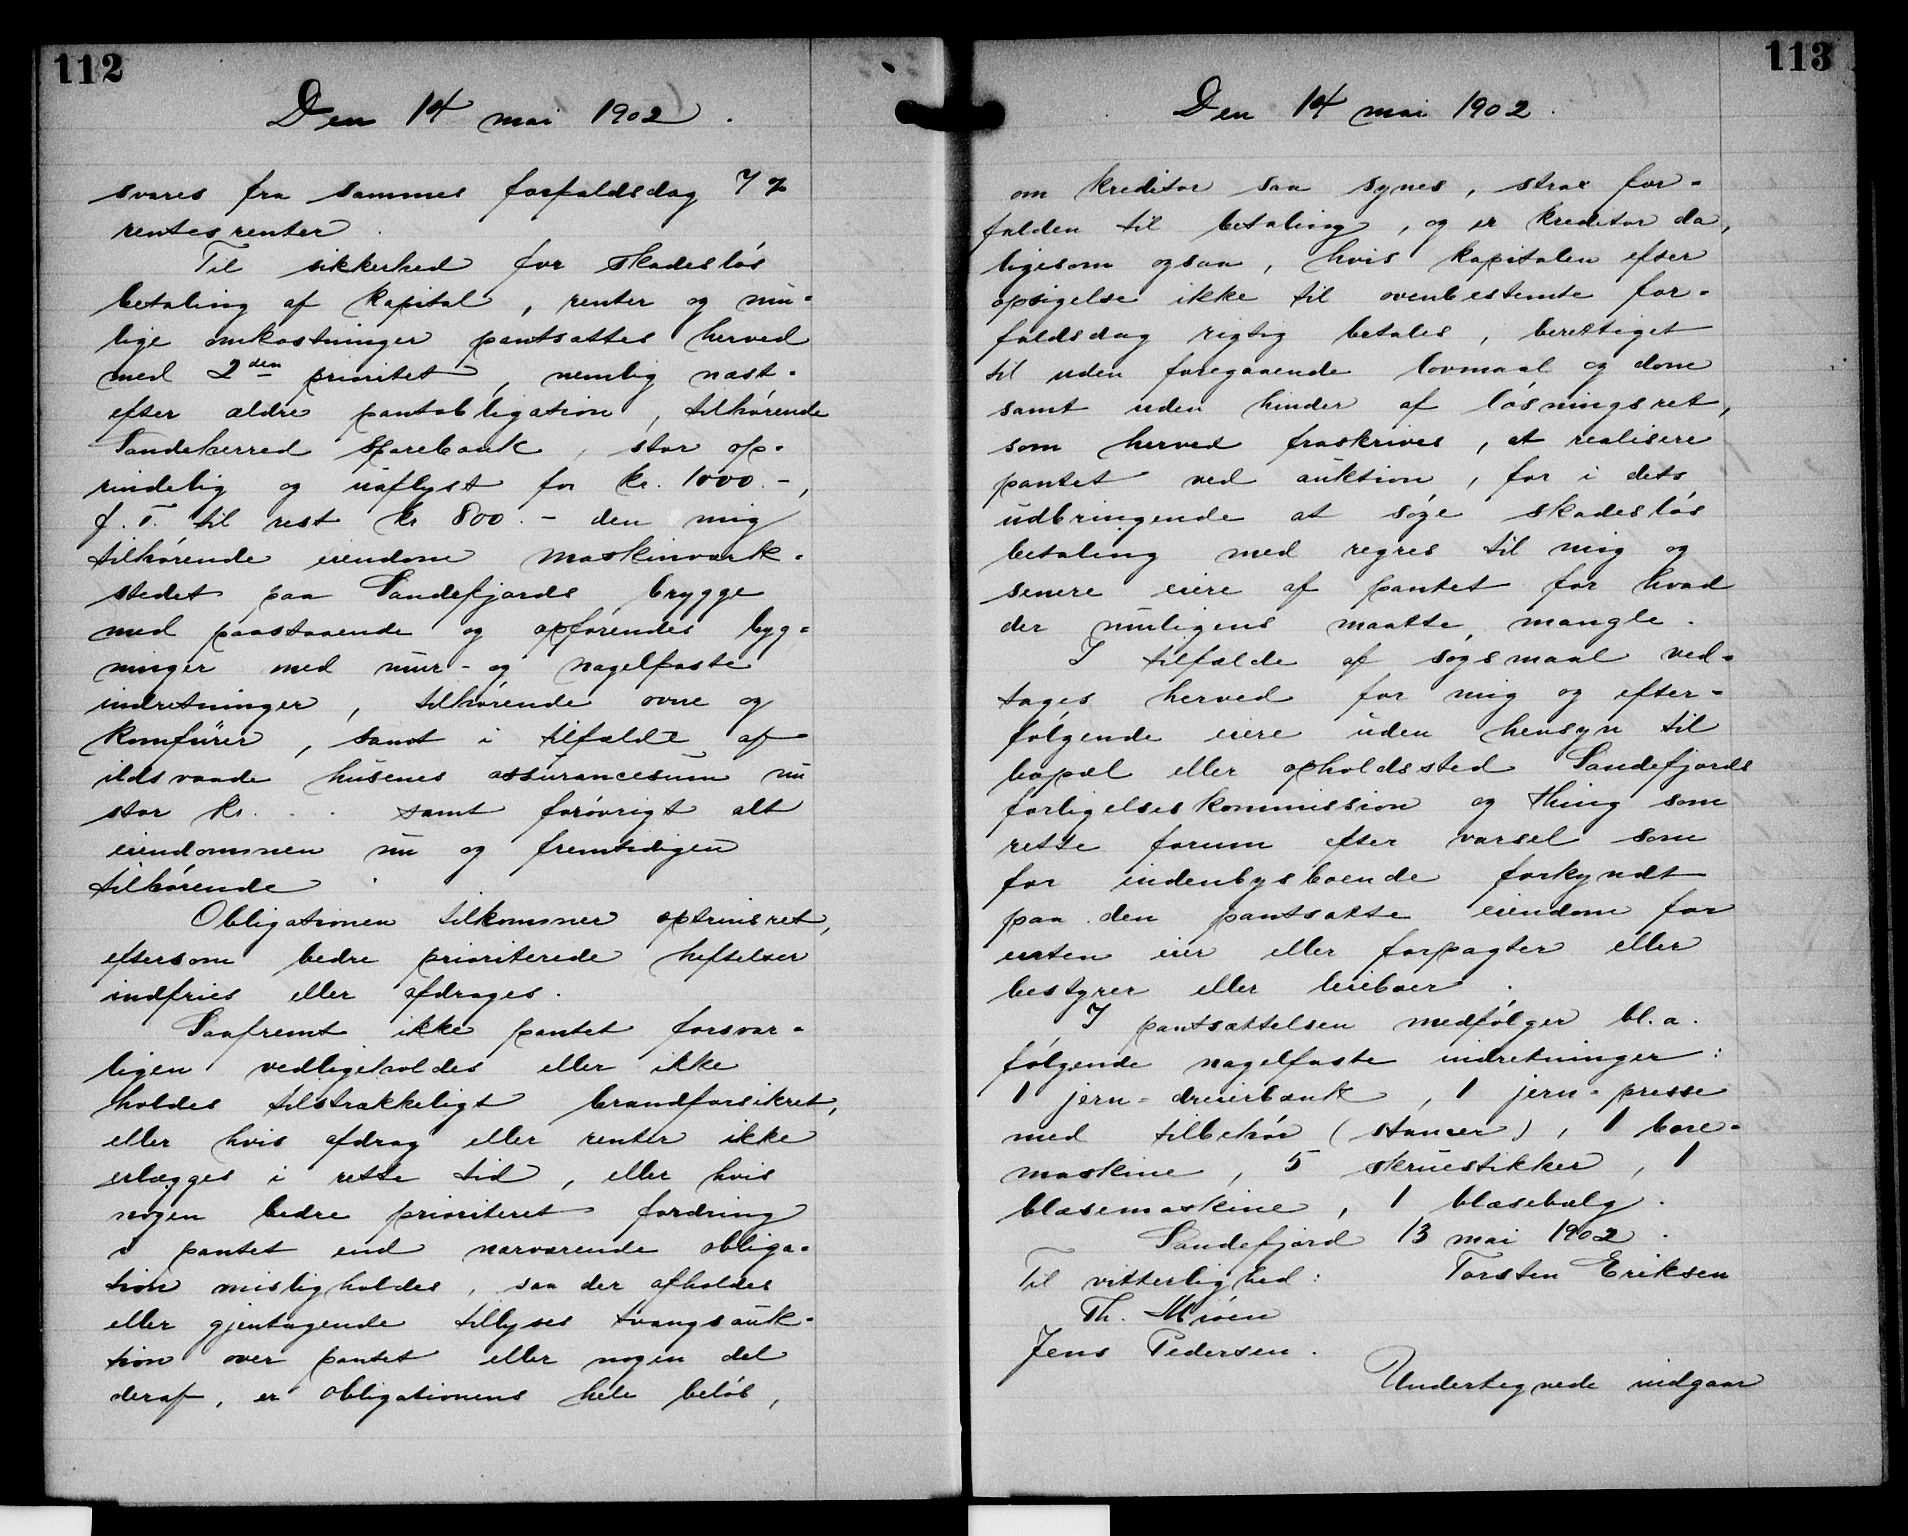 112
Den 14 mai 1902.
svares fra sammes forfaldsdag 7 %
rentesrenter.
Til sikkerhed for skadesløs
betaling af kapital, renter og mu-
lige omkostninger pantsættes herved
med 2den prioritet, nemlig næst-
efter ældre pantobligation, tilhørende
Sandeherred Sparebank, stor op-
rindelig og uaflyst for kr. 1000.-,
f. T. til rest kr 800.- den mig
tilhørende eiendom maskinværk-
stedet paa Sandefjords brygge
med paastaaende og opførendes byg-
ninger med mur- og nagelfaste
indretninger, tilhørende ovne og
komfürer, samt i tilfælde af
ildsvaade husenes assurancesum nu
stor kr. . . samt forøvrigt alt
eiendommen nu og fremtidigen
tilhørende.
Obligationen tilkommer optrinsret,
eftersom bedre prioriterede heftelser
indfries eller afdrages.
Saafremt ikke pantet forsvar-
ligen vedligeholdes eller ikke
holdes tilstrækkeligt brandforsikret,
eller hvis afdrag eller renter ikke
erlægges i rette tid, eller hvis
nogen bedre prioriteret fordring
i pantet end nærværende obliga-
tion misligholdes, saa der afholdes
eller gjentagende tillyses tvangsauk-
tion over pantet eller nogen del
deraf, er obligationens hele beløb,
113
Den 14 mai 1902.
om kreditor saa synes, strax for-
falden til betaling, og er kreditor da,
ligesom ogsaa, hvis kapitalen efter
opsigelse ikke til ovenbestemte for-
faldsdag rigtig betales, berettiget
til uden foregaaende lovmaal og dom
samt uden hinder af løsningsret,
som herved fraskrives, at realisere
pantet ved auktion, for i dets
udbringende at søge skadesløs
betaling med regres til mig og
senere eiere af pantet for hvad
der muligens maatte mangle.
I tilfælde af søgsmaal ved-
tages herved for mig og efter-
følgende eiere uden hensyn til
bopæl eller opholdssted Sandefjords
forligelseskommission og thing som
rette forum efter varsel som
for indenbysboende forkyndt
paa den pantsatte eiendom for
enten eier eller forpagter eller
bestyrer eller leieboer.
I pantsættelsen medfølger bl.a.
følgende nagelfaste indretninger:
1 jern-dreierbænk, 1 jern-presse
med tilbehør (stanser), 1 bore-
maskine, 5 skruestikker, 1
blæsemaskine, 1 blæsebælg.
Sandefjord 13 mai 1902.
Til vitterlighed: Torsten Eriksen
Th. Mjøen
Jens Pedersen.
Undertegnede indgaar